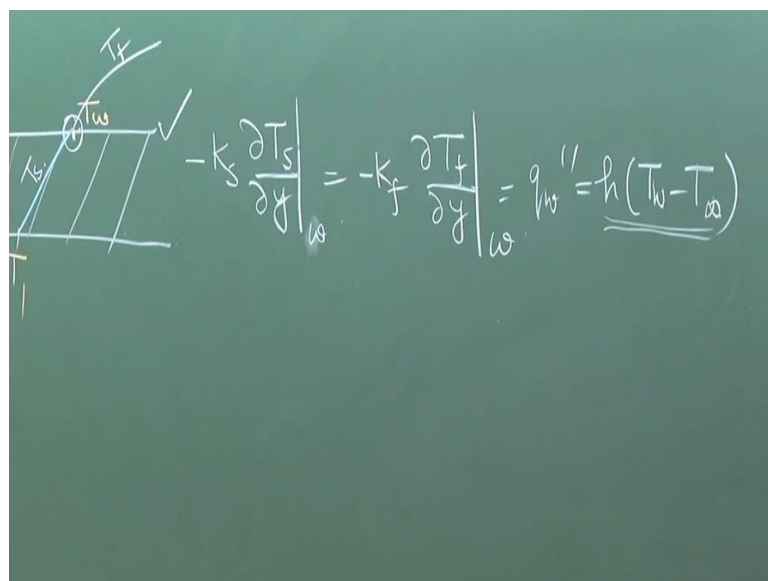 T_f
T_w
T_s
-K_s ∂T_s/∂y|_w = -K_f ∂T_f/∂y|_w = q_w'' = h(T_w - T_∞)
T_1